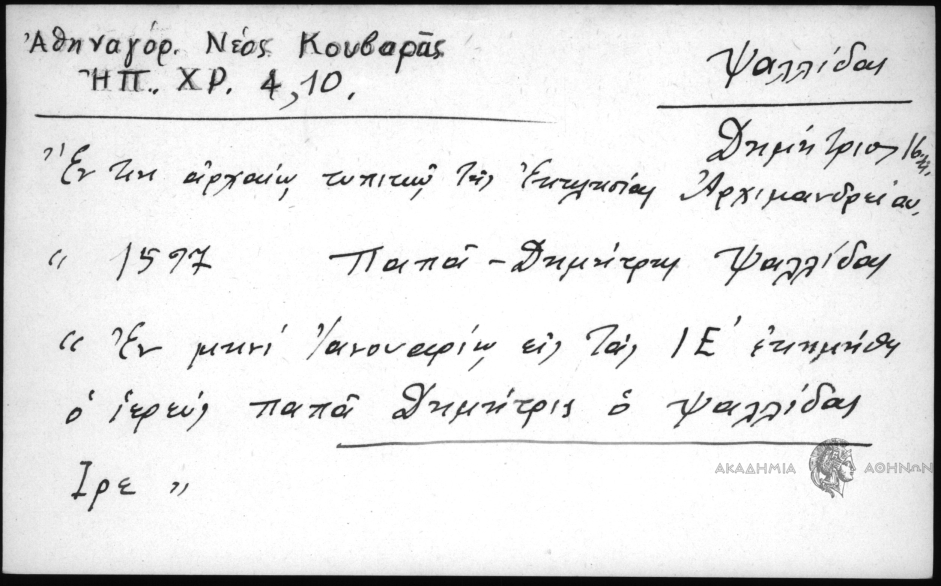 Ἀθηναγόρ. Νέος Κουβαρᾶς
ΗΠ. ΧΡ. 4, 10.
Ψαλλίδας
Δημήτριος 16
"Ἐν τῳ ἀρχαίῳ τυπικῷ τῆς Ἐκκλησίας Ἀρχιμανδρείου,
" 1597 Παπᾶ - Δημήτρης Ψαλλίδας
" Ἐν μηνί Ἰανουαρίῳ εἰς τάς ΙΕ' ἐκοιμήθη
ὁ ἱερεύς παπᾶ Δημήτρις ὁ Ψαλλίδας
"
ΑΚΑΔΗΜΙΑ ΑΘΗΝΩΝ